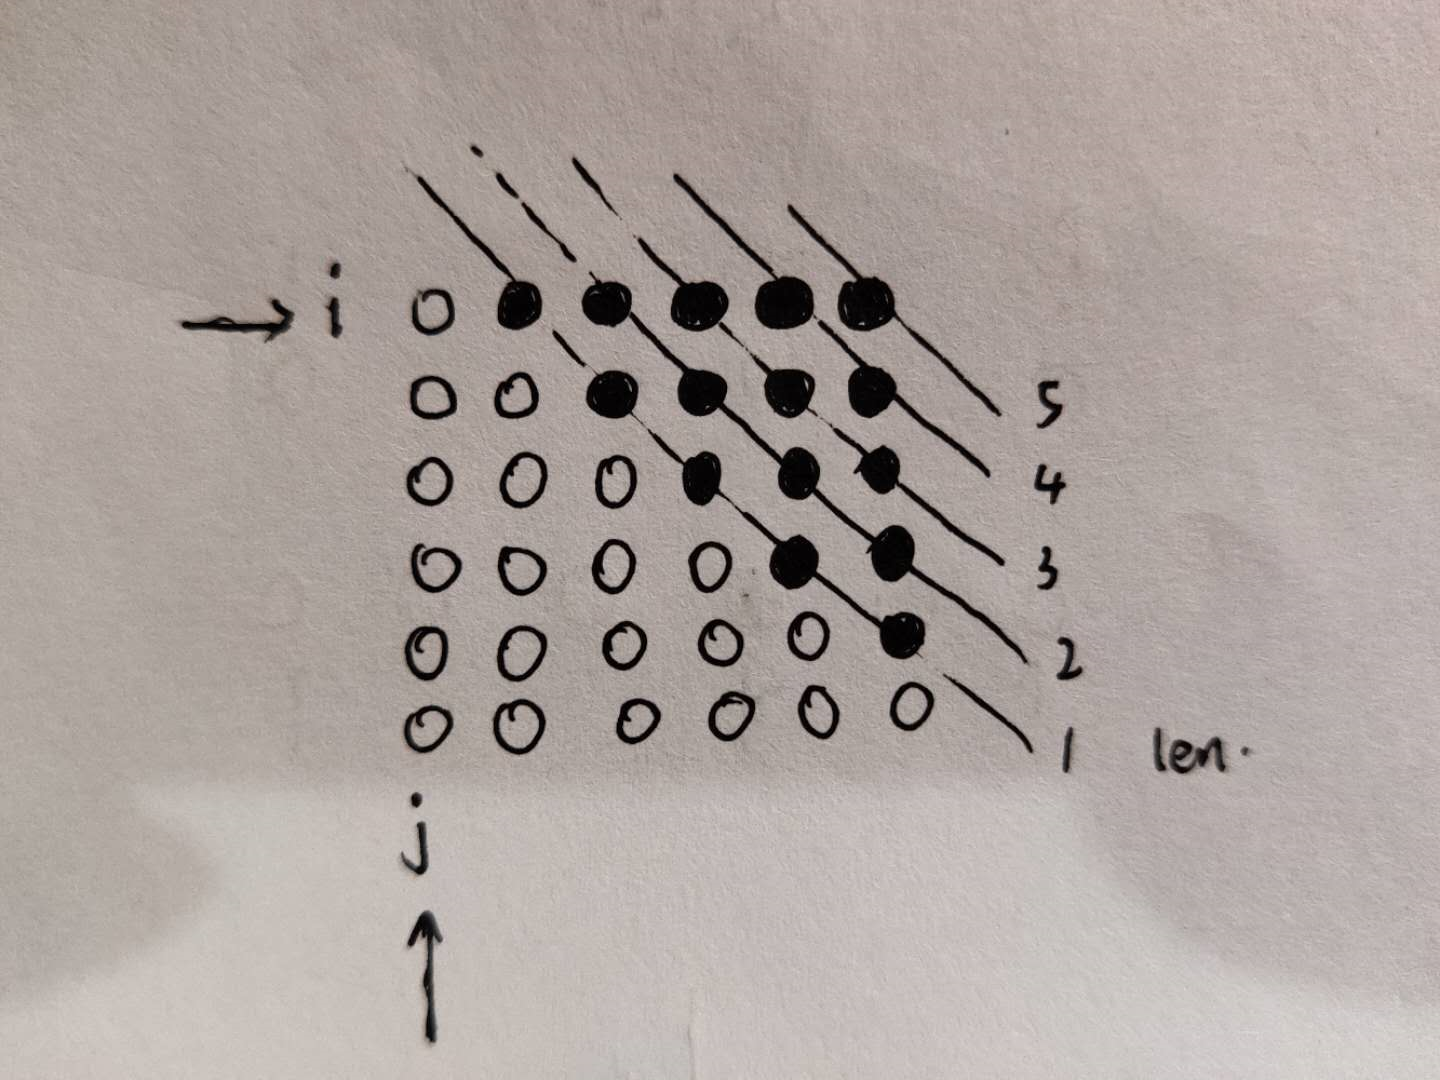 i
5
4
3
2
1 len.
j